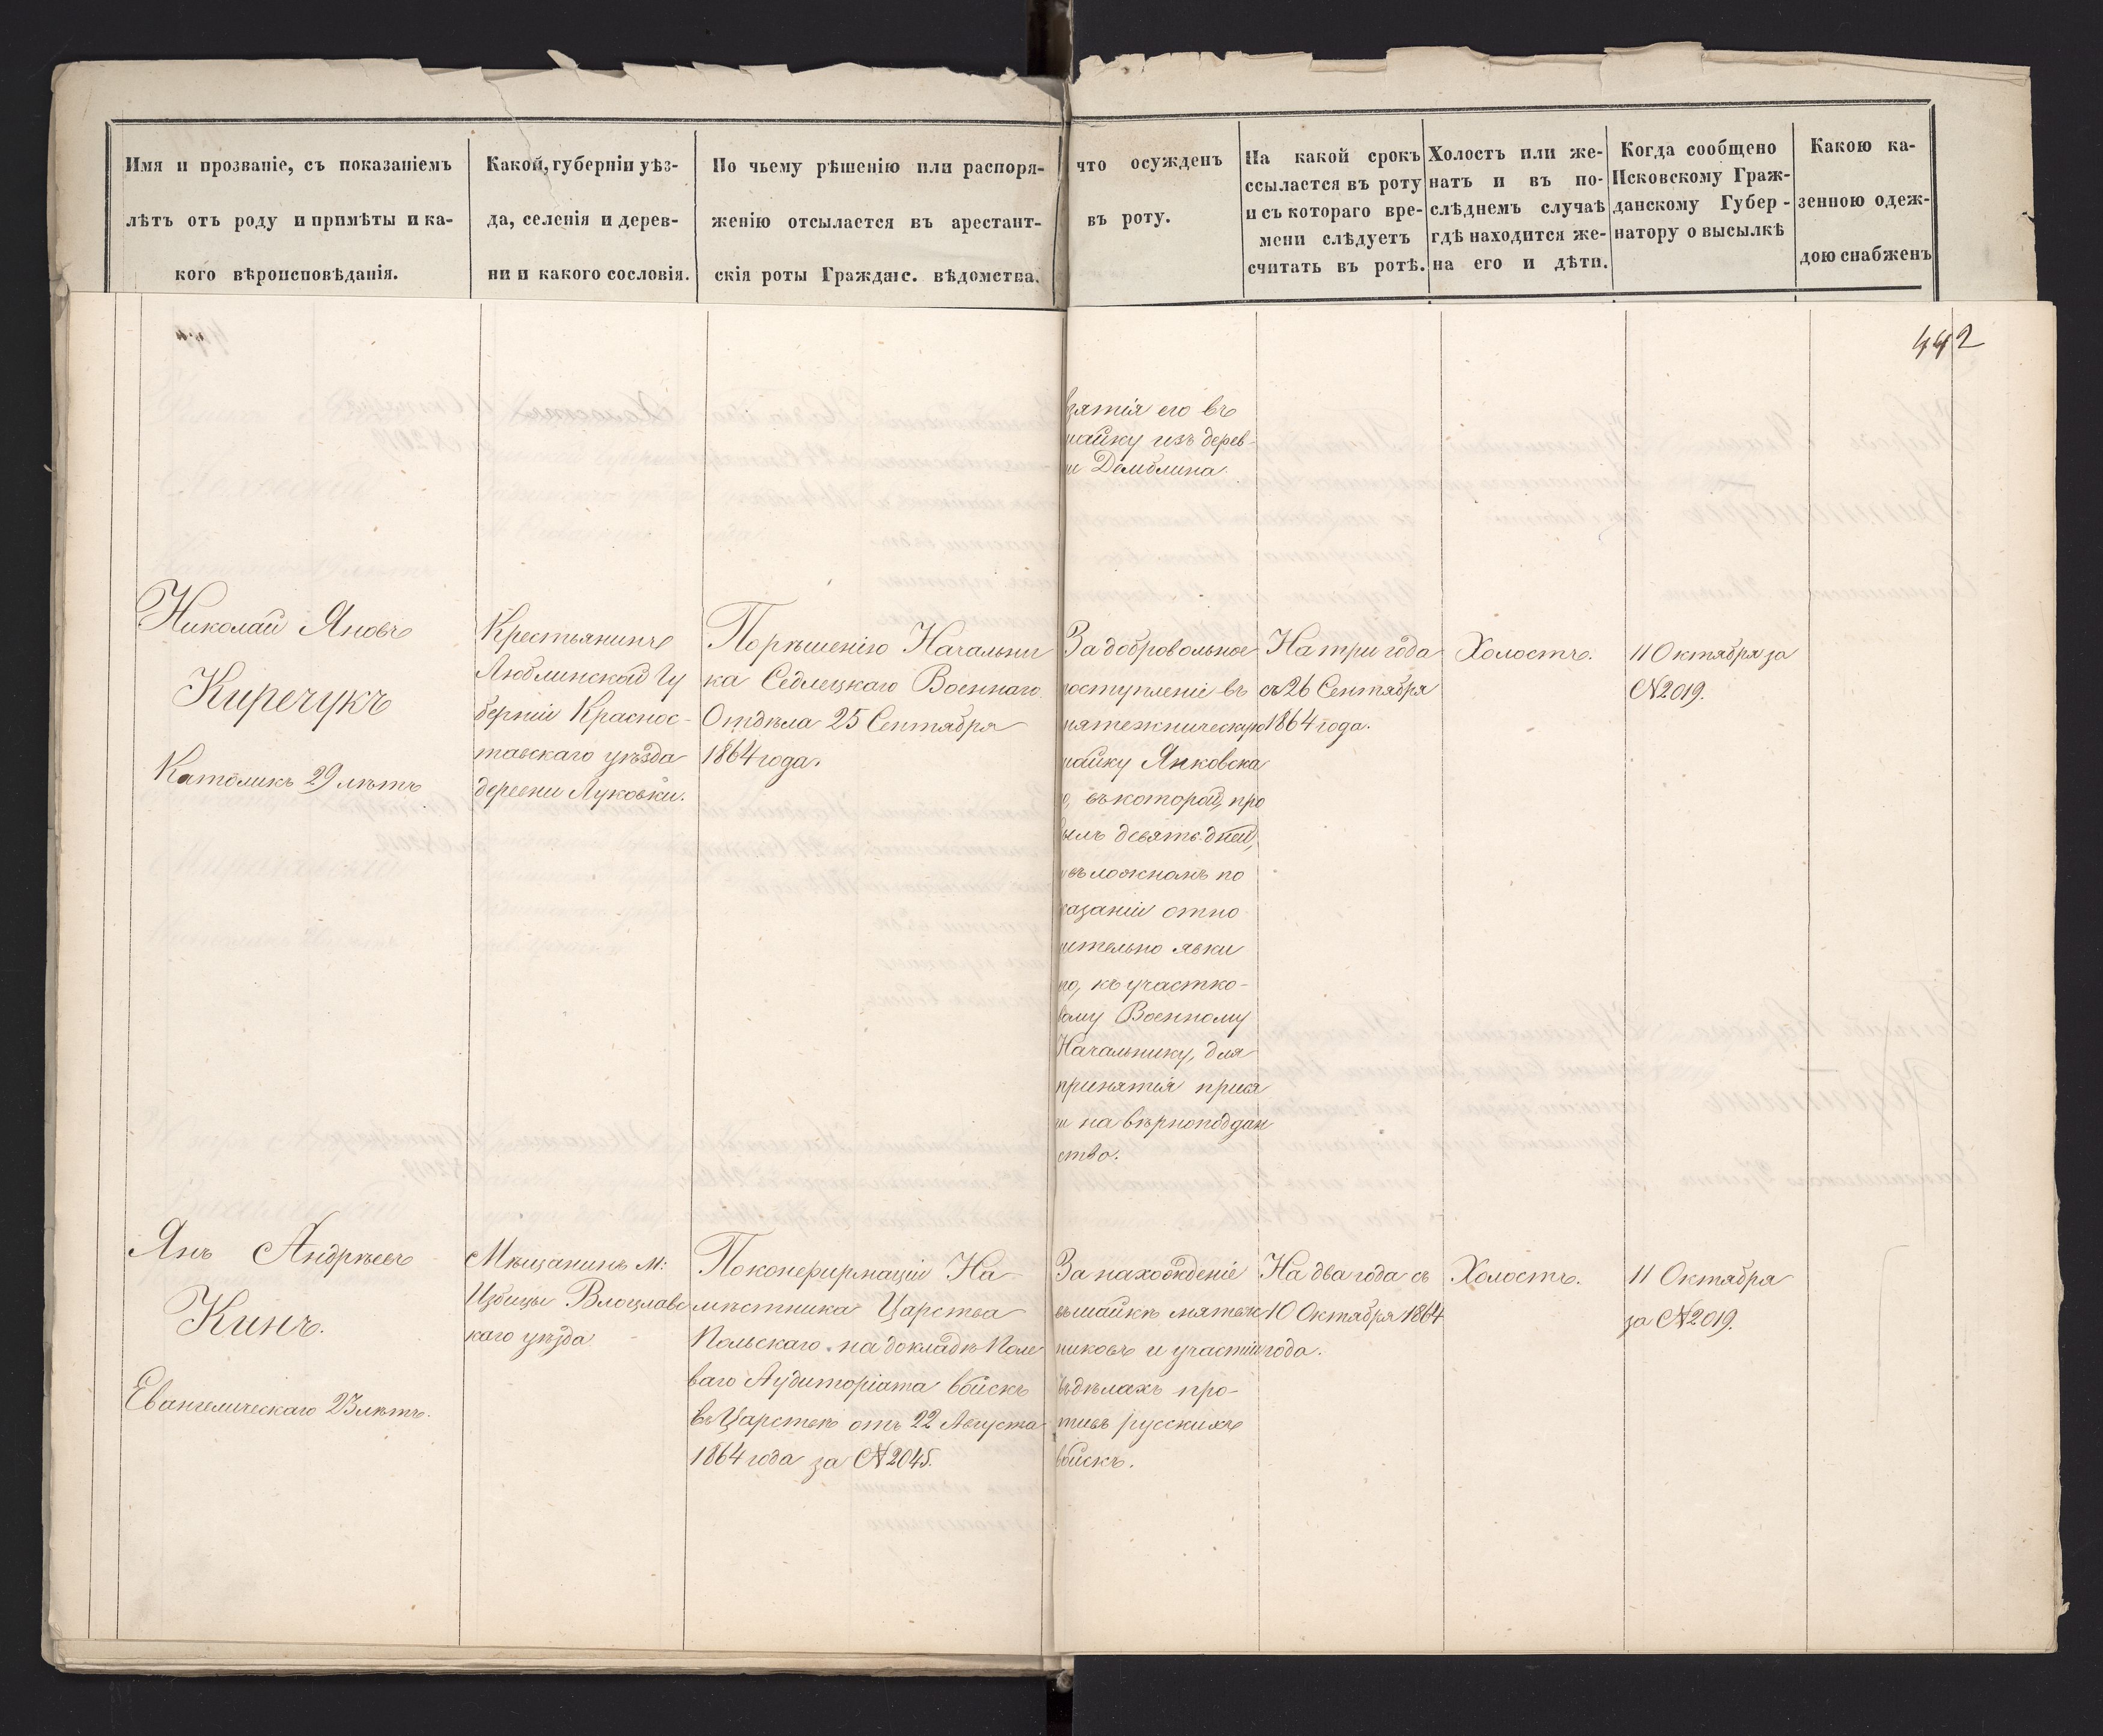 Имя и прозваніе, съ показаніемъ
лѣтъ отъ роду и примѣты и ка-
кого вѣроисповѣданія.
Какой, губерніи уѣз-
да, селенія и дерев-
ни и какого сословія.
По чьему рѣшенію или распоря-
женію отсылается въ арестант-
скія роты Гражданс. вѣдомства.
что осужденъ
въ роту.
На какой срокъ
ссылается въ роту
и съ котораго вре-
мени слѣдуетъ
считать въ ротѣ.
Холостъ или же-
натъ и въ по-
слѣднемъ случаѣ
гдѣ находится же-
на его и дѣти.
Когда сообщено
Псковскому Граж-
данскому Губер-
натору о высылкѣ
Какою ка-
зенною одеж-
дою снабженъ
442
взятія его въ
шайку изъ дерев-
ни Домблина.
Николай Яновъ
Киречукъ
Католикъ 29 лѣтъ
Крестьянинъ
Люблинской Гу
берніи Краснос-
тавскаго уѣзда
деревни Луковки.
По рѣшенію Начальни
ка Седлецкаго Военнаго
Отдѣла 25 Сентября
1864 года.
За добровольное
поступленіе въ
мятежническую
шайку Янковска
го, въ которой, про
былъ девять дней,
и въ ложномъ по
казаніи отно
сительно явки
его, къ участко-
вому Военному
Начальнику, для
принятія прися
ги на вѣрноподдан
ство.
На три года
съ 26 Сентября
1864 года.
Холостъ.
11 Октября за
№ 2019.
Янъ Андрѣевъ
Кинъ.
Евангелическаго 23 лѣтъ.
Мѣщанинъ м:
Избицы Влоцлавс
каго уѣзда
По конфирмаціи На-
мѣстника Царства
Польскаго на докладѣ Поле
ваго Аудиторіата войскъ
въ Царствѣ отъ 22 Августа
1864 года за № 2045.
За нахожденіе
въ шайкѣ мятеж
никовъ и участіи
въ дѣлахъ про-
тивъ русскихъ
войскъ.
На два года съ
10 Октября 1864
года.
Холостъ.
11 Октября
за № 2019.